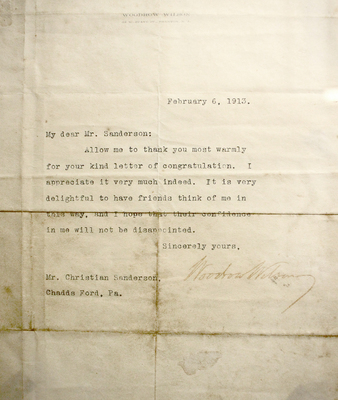 WOODROW WILSON
February 6, 1913.
My dear Mr. Sanderson:
Allow me to thank you most warmly
for your kind letter of congratulation. I
appreciate it very much indeed. It is very
delightful to have friends think of me in
this way, and I hope that their confidence
in me will not be disappointed.
Sincerely yours,
Woodrow Wilson
Mr. Christian Sanderson,
Chadds Ford, Pa.